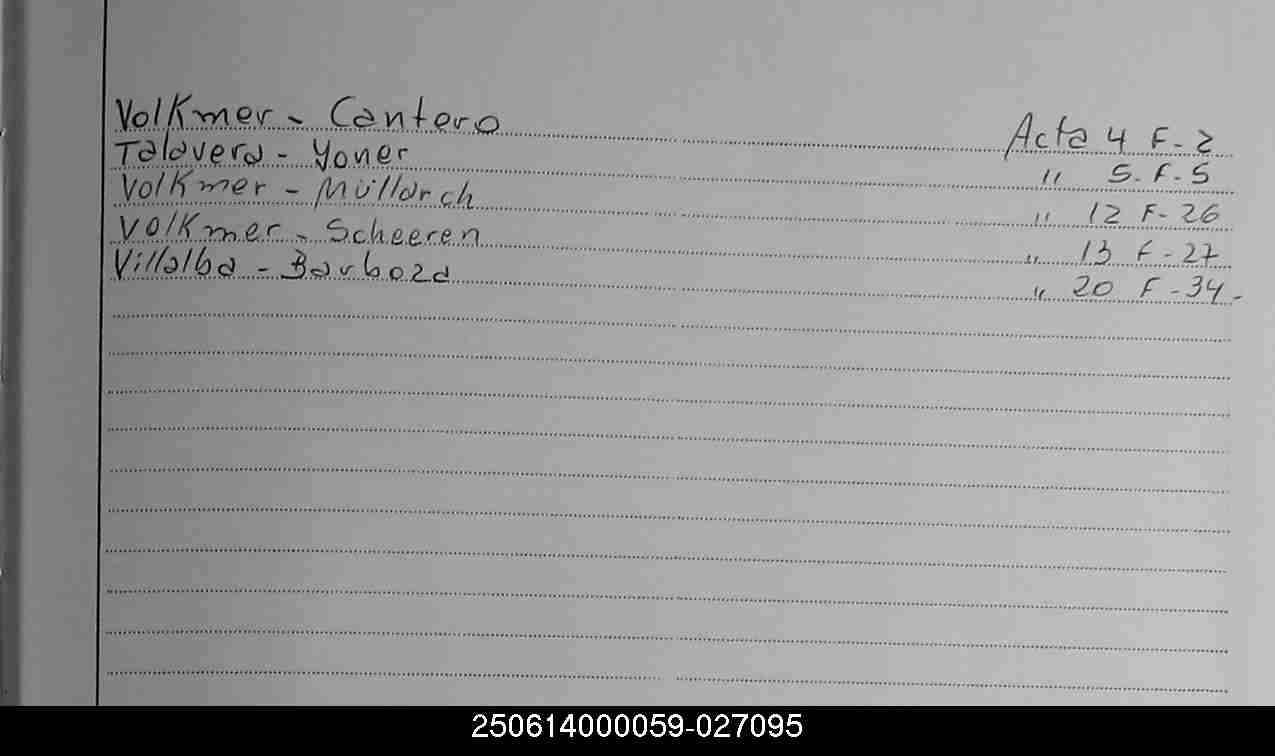 Volkmer - Cantero Acta 4 F-2
Talavera - Yoner " 5. F. 5
Volkmer - Müllarch " 12 F-26
Volkmer - Scheeren " 13 F-27
Villalba - Barboza " 20 F-34-
250614000059-027095